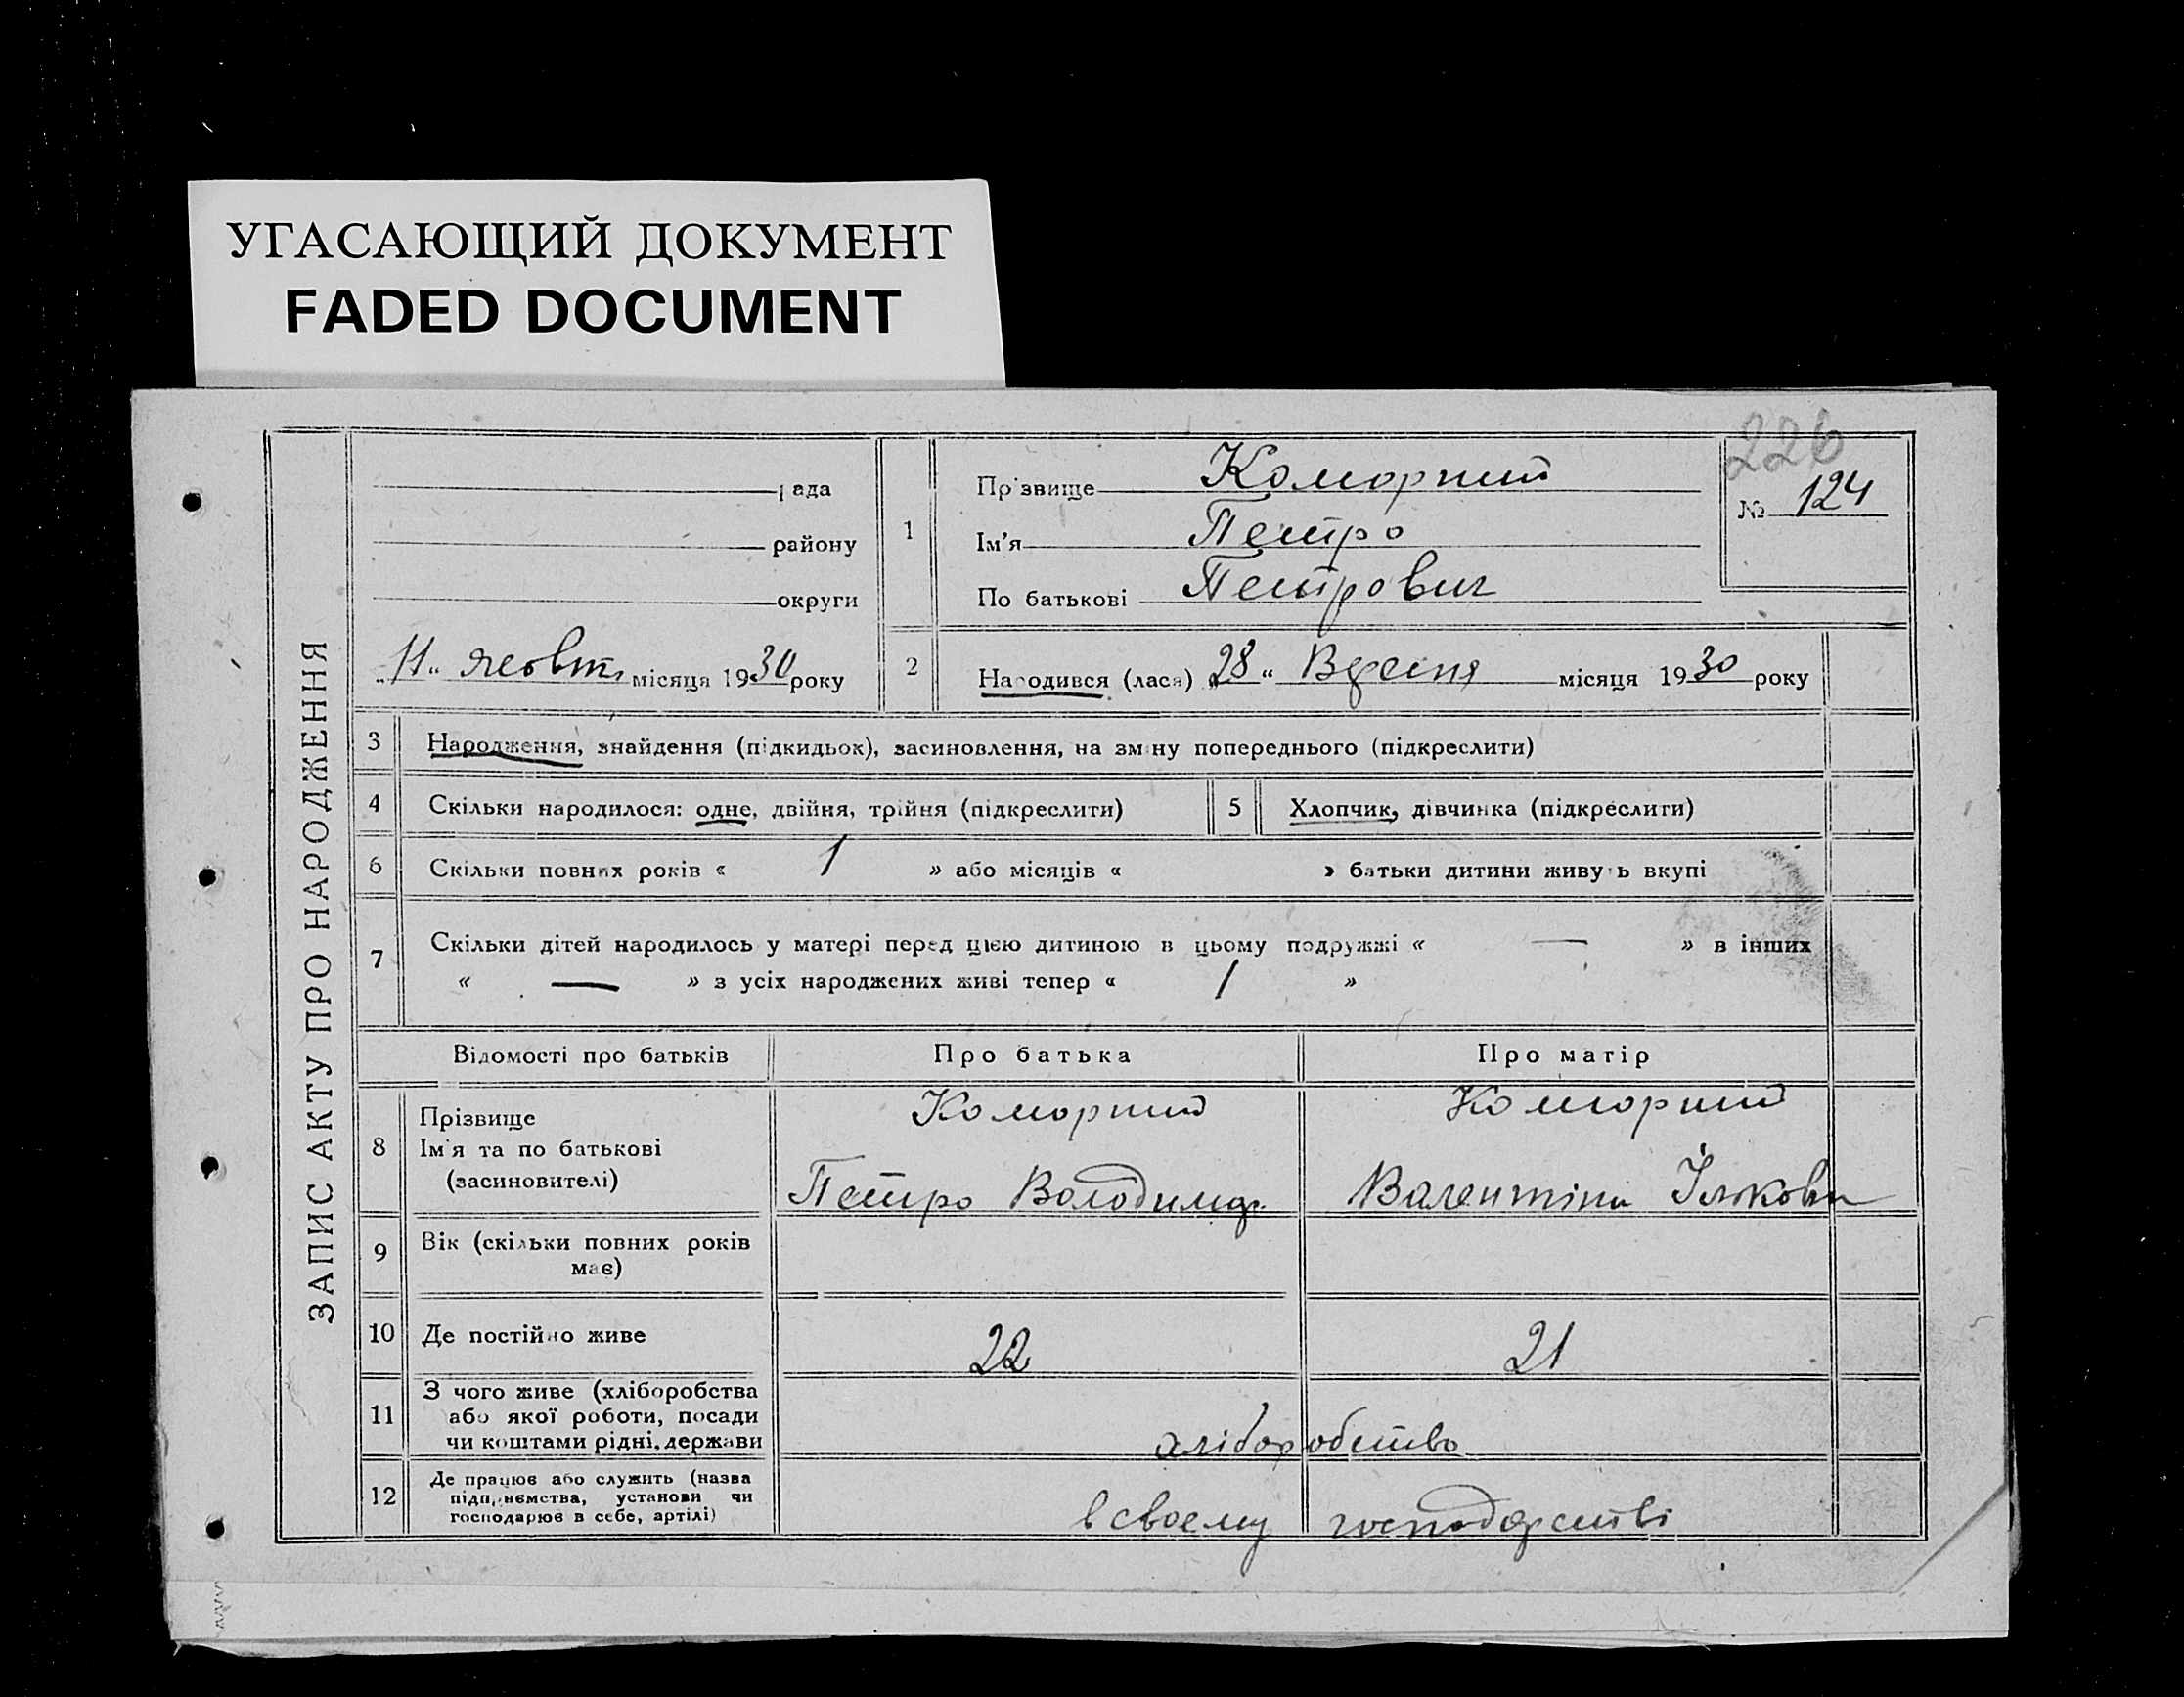 УГАСАЮЩИЙ ДОКУМЕНТ
FADED DOCUMENT
226
ЗАПИС АКТУ ПРО НАРОДЖЕННЯ
рада
району
округи
„11“ жовтн місяця 1930 року
1
Прізвище Коморний
Ім'я Петро
По батькові Петрович
№ 124
2 Народився (лася) „28“ Вересня місяця 1930 року
3 Народження, знайдення (підкидьок), засиновлення, на зміну попереднього (підкреслити)
4 Скільки народилося: одне, двійня, трійня (підкреслити) 5 Хлопчик, дівчинка (підкреслити)
6 Скільки повних років « 1 » або місяців « » батьки дитини живуть вкупі
7 Скільки дітей народилось у матері перед цією дитиною в цьому подружжі « — » в інших
« — » з усіх народжених живі тепер « 1 »
Відомості про батьків Про батька Про матір
8 Прізвище Коморний Коморний
Ім'я та по батькові
(засиновителі) Петро Володимир. Валентина Ільковна
9 Вік (скільки повних років
має)
10 Де постійно живе 22 21
11 З чого живе (хліборобства
або якої роботи, посади
чи коштами рідні, держави хліборобство
12 Де працює або служить (назва
підприємства, установи чи
господарює в себе, артілі) в своему господарстві